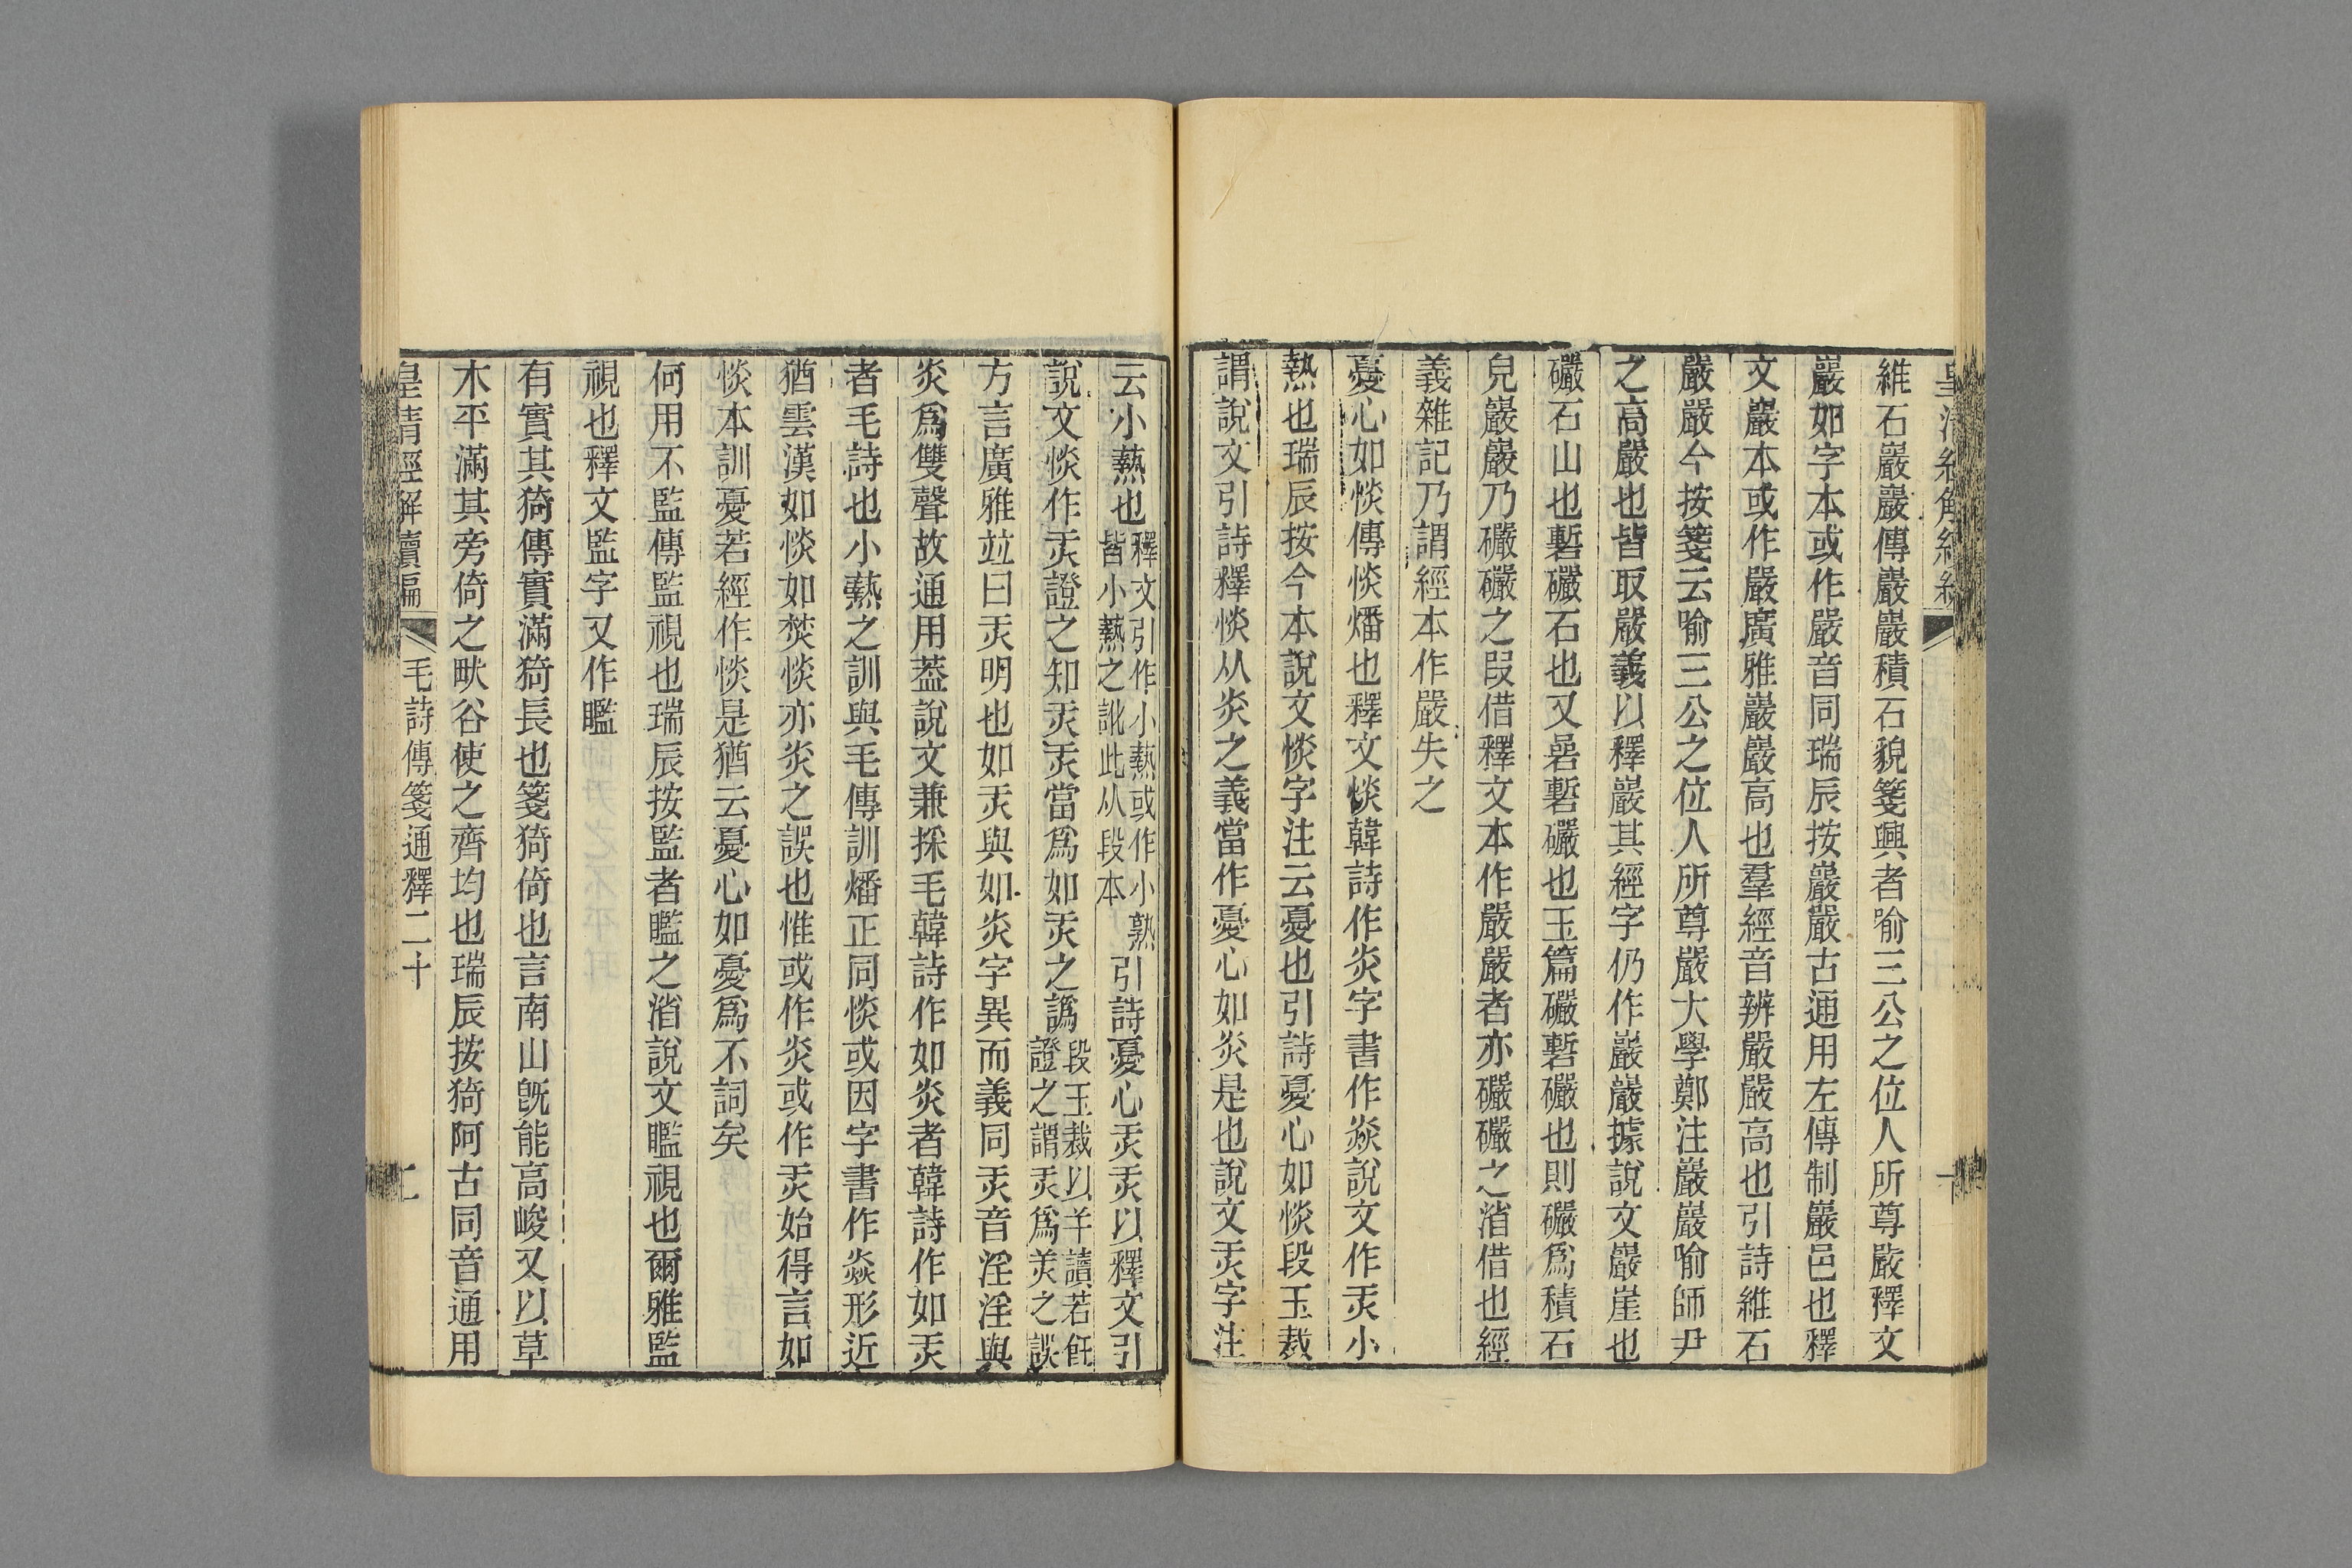 維石巖巖傳巖巖積石貌箋興者喻三公之位人所尊嚴釋文
巖如字本或作嚴音同瑞辰按巖嚴古通用左傳制巖邑也釋
文巖本或作嚴廣雅巖巖高也羣經音辨嚴嚴高也引詩維石
嚴嚴今按箋云喻三公之位人所尊嚴大學鄭注巖巖喻師尹
之高嚴也皆取嚴義以釋巖其經字仍作巖巖據說文巖崖也
礹石山也磛礹石也又嵒磛礹也玉篇礹磛礹也則礹爲積石
皃巖巖乃礹礹之叚借釋文本作嚴嚴者亦礹礹之渻借也經
義雜記乃謂經本作嚴失之
憂心如惔傳惔燔也釋文惔韓詩作炎字書作焱說文作𤆎小
熱也瑞辰按今本說文惔字注云憂也引詩憂心如惔段玉裁
謂說文引詩釋惔从炎之義當作憂心如炎是也說文𤆎字注
云小爇也釋文引作小熱或作小熟皆小爇之訛此从段本引詩憂心𤆎𤆎以釋文引
說文惔作𤆎證之知𤆎𤆎當爲如𤆎之譌段玉裁以羊讀若飪證之謂𤆎爲羙之誤
方言廣雅竝曰𤆎明也如𤆎與如炎字異而義同𤆎音淫淫與
炎爲雙聲故通用葢說文兼採毛韓詩作如炎者韓詩作如𤆎
者毛詩也小爇之訓與毛傳訓燔正同惔或因字書作焱形近
猶雲漢如惔如焚惔亦炎之誤也惟或作炎或作𤆎始得言如
惔本訓憂若經作惔是猶云憂心如憂爲不詞矣
何用不監傳監視也瑞辰按監者䁠之渻說文䁠視也爾雅監
視也釋文監字又作䁠
有實其猗傳實滿猗長也箋猗倚也言南山旣能高峻又以草
木平滿其旁倚之畎谷使之齊均也瑞辰按猗阿古同音通用
皇清經解續編 毛詩傳箋通釋二十